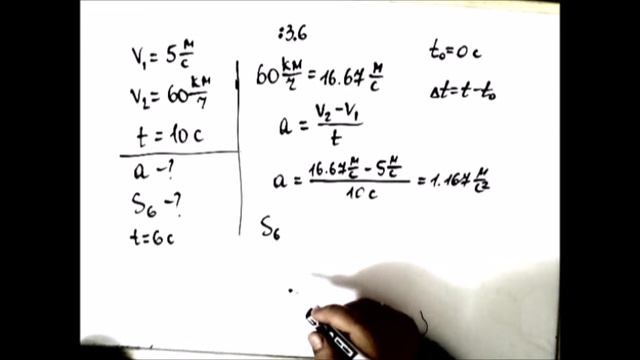 V₁ = 5 м/с
V₂ = 60 км/ч
t = 10 с
a - ?
S₆ - ?
t = 6 с
:3.6
60 км/ч = 16.67 м/с
a = (V₂ - V₁)/t
a = (16.67 м/с - 5 м/с)/10 с = 1.167 м/с²
S₆
t₀ = 0 с
Δt = t - t₀